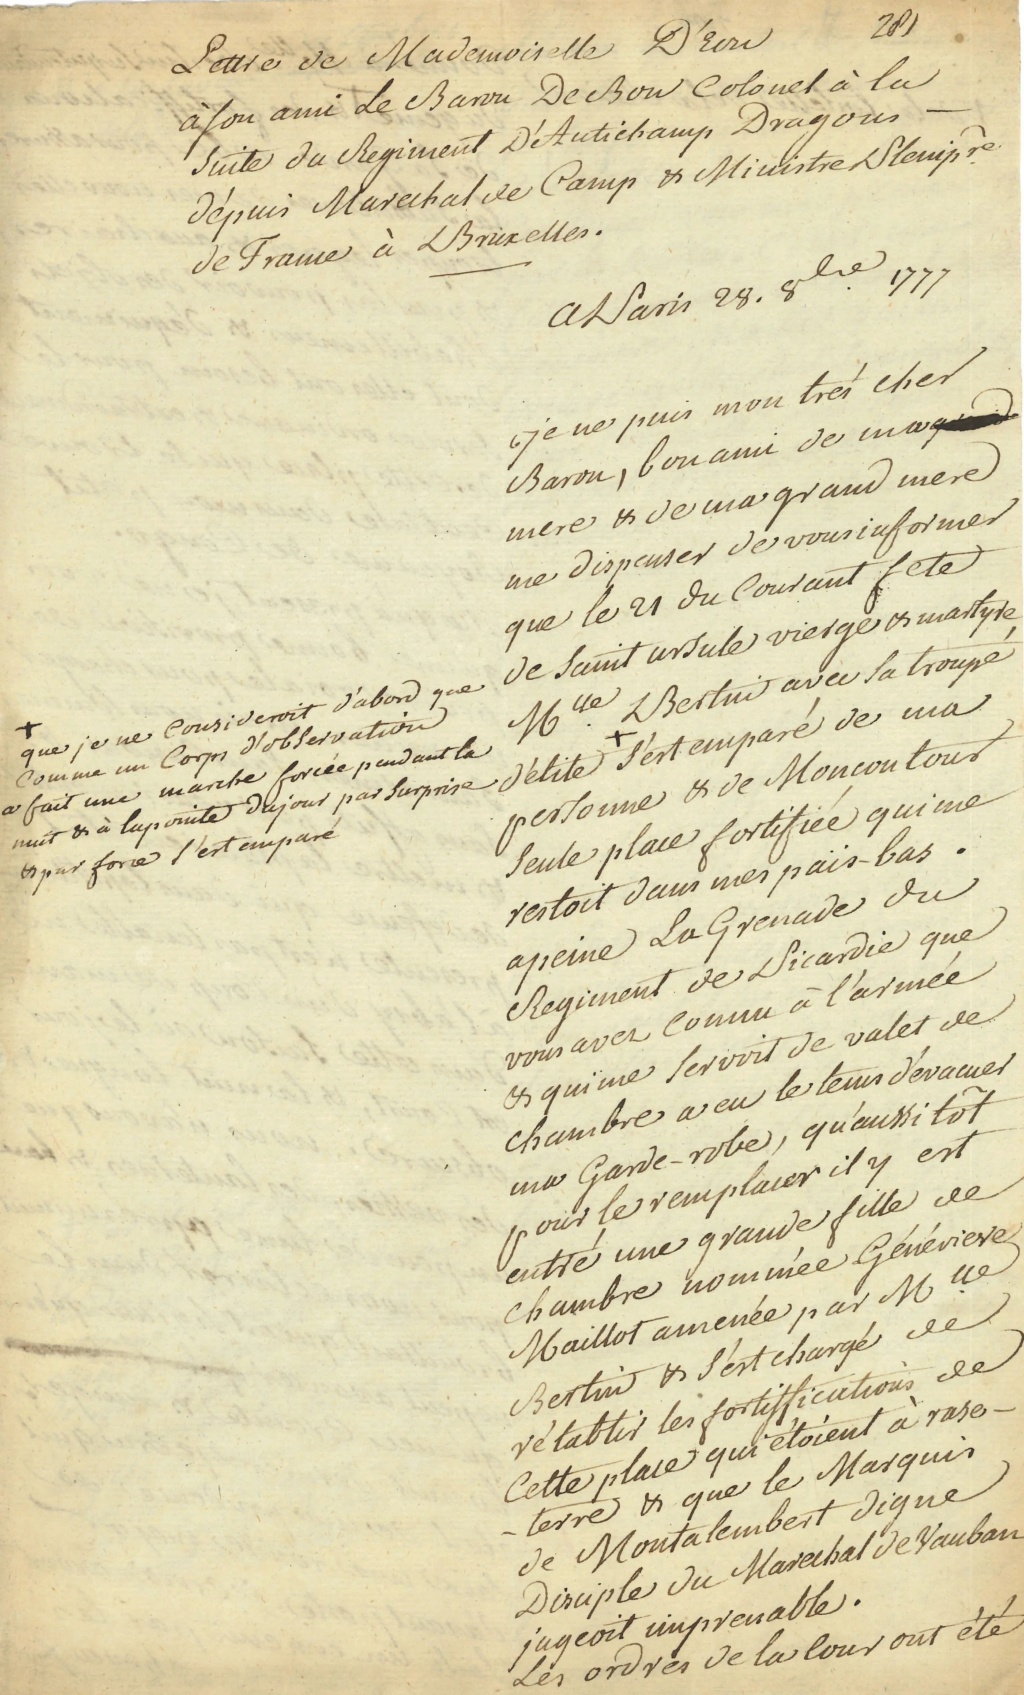 281
Lettre de Mademoiselle D'Eon
à son ami Le Baron De Bon Colonel à la
suite du Regiment D'Autichamp Dragons —
dépuis Marechal de Camp & Ministre Plenip.re
de France à Bruxelles.
A Paris 28. 8bre. 1777
je ne puis mon trés cher
Baron, bon ami de ma
mere & de ma grand mere
me dispenser de vous informer
que le 21 du Courant fete
de saint ursule vierge & martyre
Mlle. Bertin avec sa troupé
d'élite + s'est emparé de ma
personne & de Moncontour
seule place fortifiée qui me
restoit dans mes païs-bas.
apeine La Grenade du
Regiment de Picardie que
vous avez connu à l'armée
& qui me servoit de valet de
chambre a eu le tems d'évacuer
ma Garde-robe, qu'aussitôt
pour le remplacer il y est
entré une grande fille de
chambre nommée Généviere
Maillot amenée par Mlle
Bertin & s'est chargé de
rétablir les fortiffications de
Cette place qui étoient à rase-
-terre & que le Marquis
de Montalembert digne
Disciple du Marechal de Vauban
jugeoit imprenable.
Les ordres de la Cour ont été
+
que je ne Considerois d'abord que
Comme un Corps d'observation
a fait une marche forcée pendant la
nuit & à la pointe du jour par surprise
& par force s'est emparé